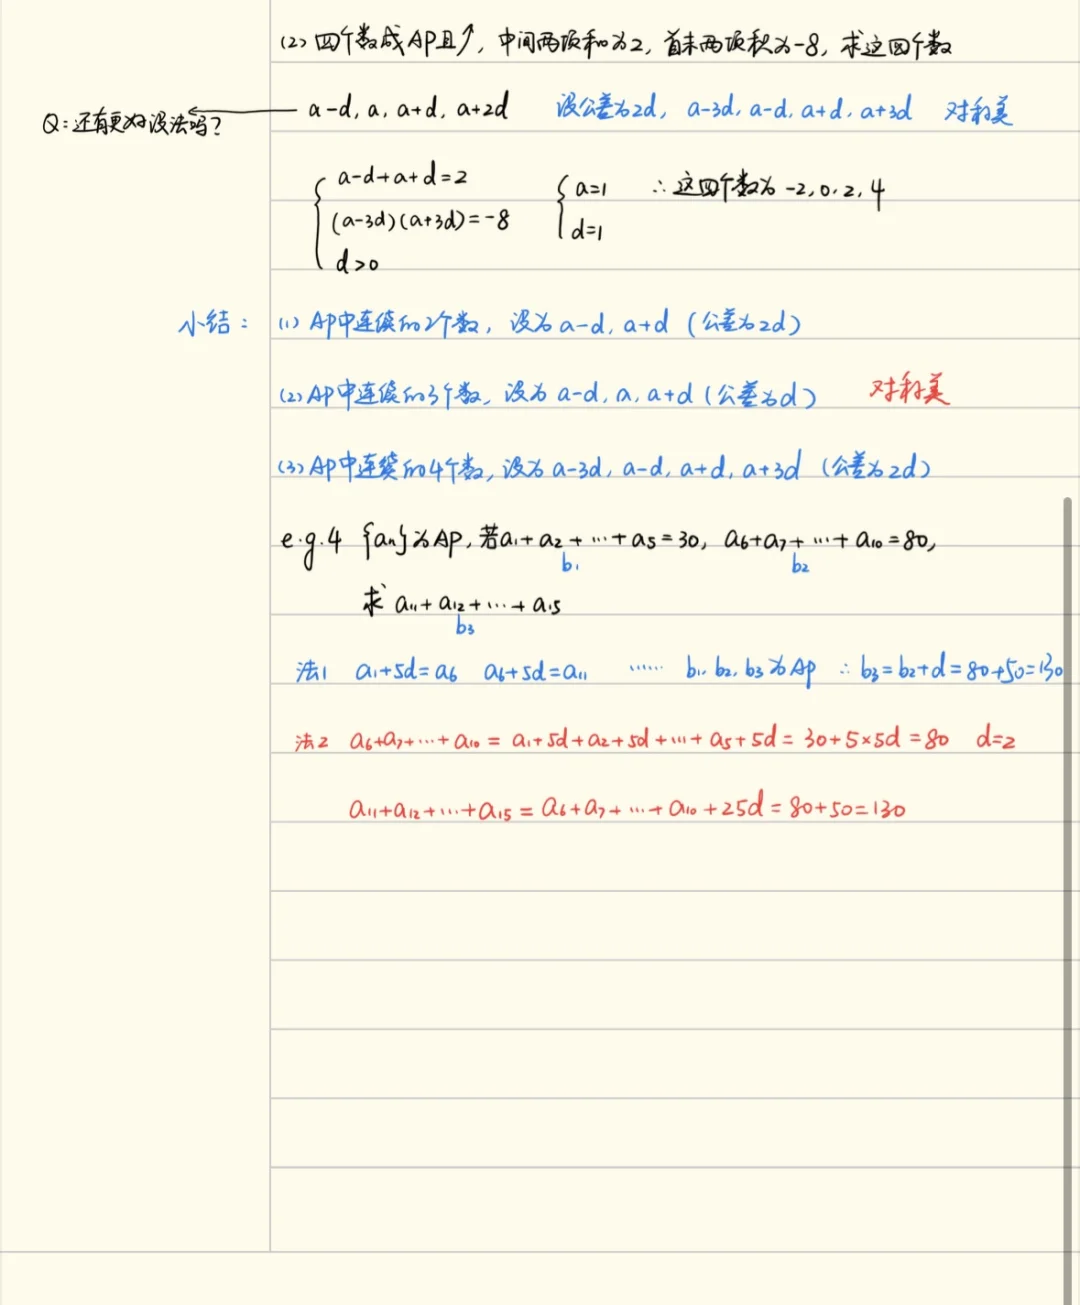 (2) 四个数成AP且↑, 中间两项和为2, 首末两项积为-8, 求这四个数
Q: 还有更好设法吗? ← a-d, a, a+d, a+2d 设公差为2d, a-3d, a-d, a+d, a+3d 对称美
{ a-d+a+d=2
(a-3d)(a+3d)=-8
d>0
{ a=1
d=1
∴ 这四个数为 -2, 0, 2, 4
小结: (1) AP中连续的2个数, 设为 a-d, a+d (公差为2d)
(2) AP中连续的3个数, 设为 a-d, a, a+d (公差为d) 对称美
(3) AP中连续的4个数, 设为 a-3d, a-d, a+d, a+3d (公差为2d)
e.g.4 {an}为AP, 若a₁+a₂+…+a₅=30, a₆+a₇+…+a₁₀=80,
b₁ b₂
求 a₁₁+a₁₂+…+a₁₅
b₃
法1 a₁+5d=a₆ a₆+5d=a₁₁ …… b₁, b₂, b₃为AP ∴ b₃=b₂+d=80+50=130
法2 a₆+a₇+…+a₁₀ = a₁+5d+a₂+5d+…+a₅+5d = 30+5×5d = 80 d=2
a₁₁+a₁₂+…+a₁₅ = a₆+a₇+…+a₁₀+25d = 80+50=130